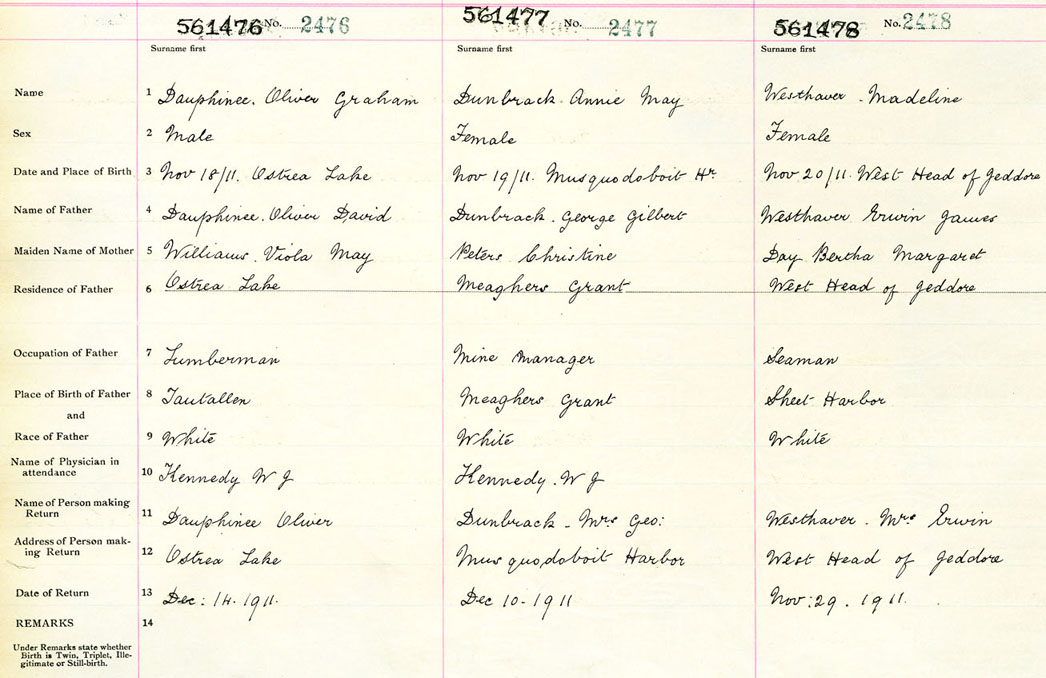 561476 No. 2476 561477 No. 2477 561478 No. 2478
Surname first Surname first Surname first
Name 1 Dauphinee. Oliver Graham Dunbrack. Annie May Westhaver. Madeline
Sex 2 Male Female Female
Date and Place of Birth 3 Nov 18/11. Ostrea Lake Nov 19/11. Musquodoboit Hr. Nov 20/11. West Head of Jeddore
Name of Father 4 Dauphinee. Oliver David Dunbrack. George Gilbert Westhaver Erwin James
Maiden Name of Mother 5 Williams. Viola May Peters Christine Day Bertha Margaret
Residence of Father 6 Ostrea Lake Meaghers Grant West Head of Jeddore
Occupation of Father 7 Lumberman Mine Manager Seaman
Place of Birth of Father 8 Tantallen Meaghers Grant Sheet Harbor
and
Race of Father 9 White White White
Name of Physician in
attendance 10 Kennedy W J Kennedy. W J
Name of Person making
Return 11 Dauphinee Oliver Dunbrack - Mrs Geo: Westhaver. Mrs Erwin
Address of Person mak-
ing Return 12 Ostrea Lake Musquodoboit Harbor West Head of Jeddore
Date of Return 13 Dec: 14. 1911. Dec 10-1911 Nov: 29. 1911.
REMARKS 14
Under Remarks state whether
Birth is Twin, Triplet, Ille-
gitimate or Still-birth.